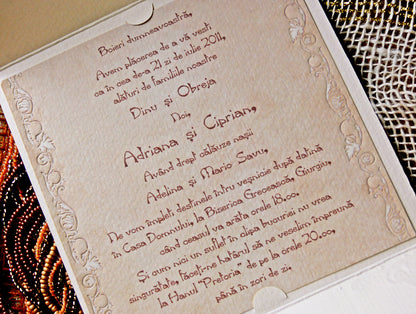 Boieri dumneavoastră,
Avem plăcerea de a vă vesti
ca în cea de-a 21 zi de iulie 2011,
alături de familiile noastre
Dinu și Obreja
Noi,
Adriana și Ciprian,
Având drept călăuze nașii
Adelina și Mario Savu,
Ne vom împleti destinele întru veșnicie după datină
în Casa Domnului, la Biserica Grecoască, Giurgiu,
când ceasul va arăta orele 18.00.
Și cum nici un suflet în clipa bucuriei nu vrea
singurătate, faceți-ne hatârul să ne veselim împreună
la Hanul "Pretoria" de pe la orele 20.00,
până în zori de zi.